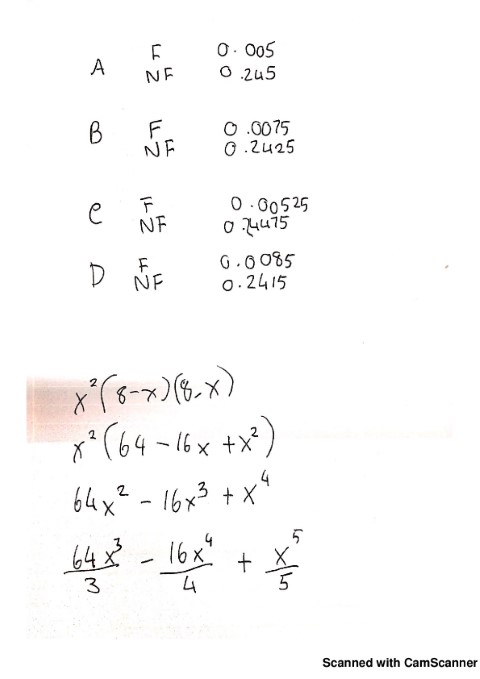 A F 0.005
NF 0.245
B F 0.0075
NF 0.2425
C F 0.00525
NF 0.24475
D F 0.0085
NF 0.2415
x²(8-x)(8-x)
x²(64 - 16x + x²)
64x² - 16x³ + x⁴
64x³/3 - 16x⁴/4 + x⁵/5
Scanned with CamScanner